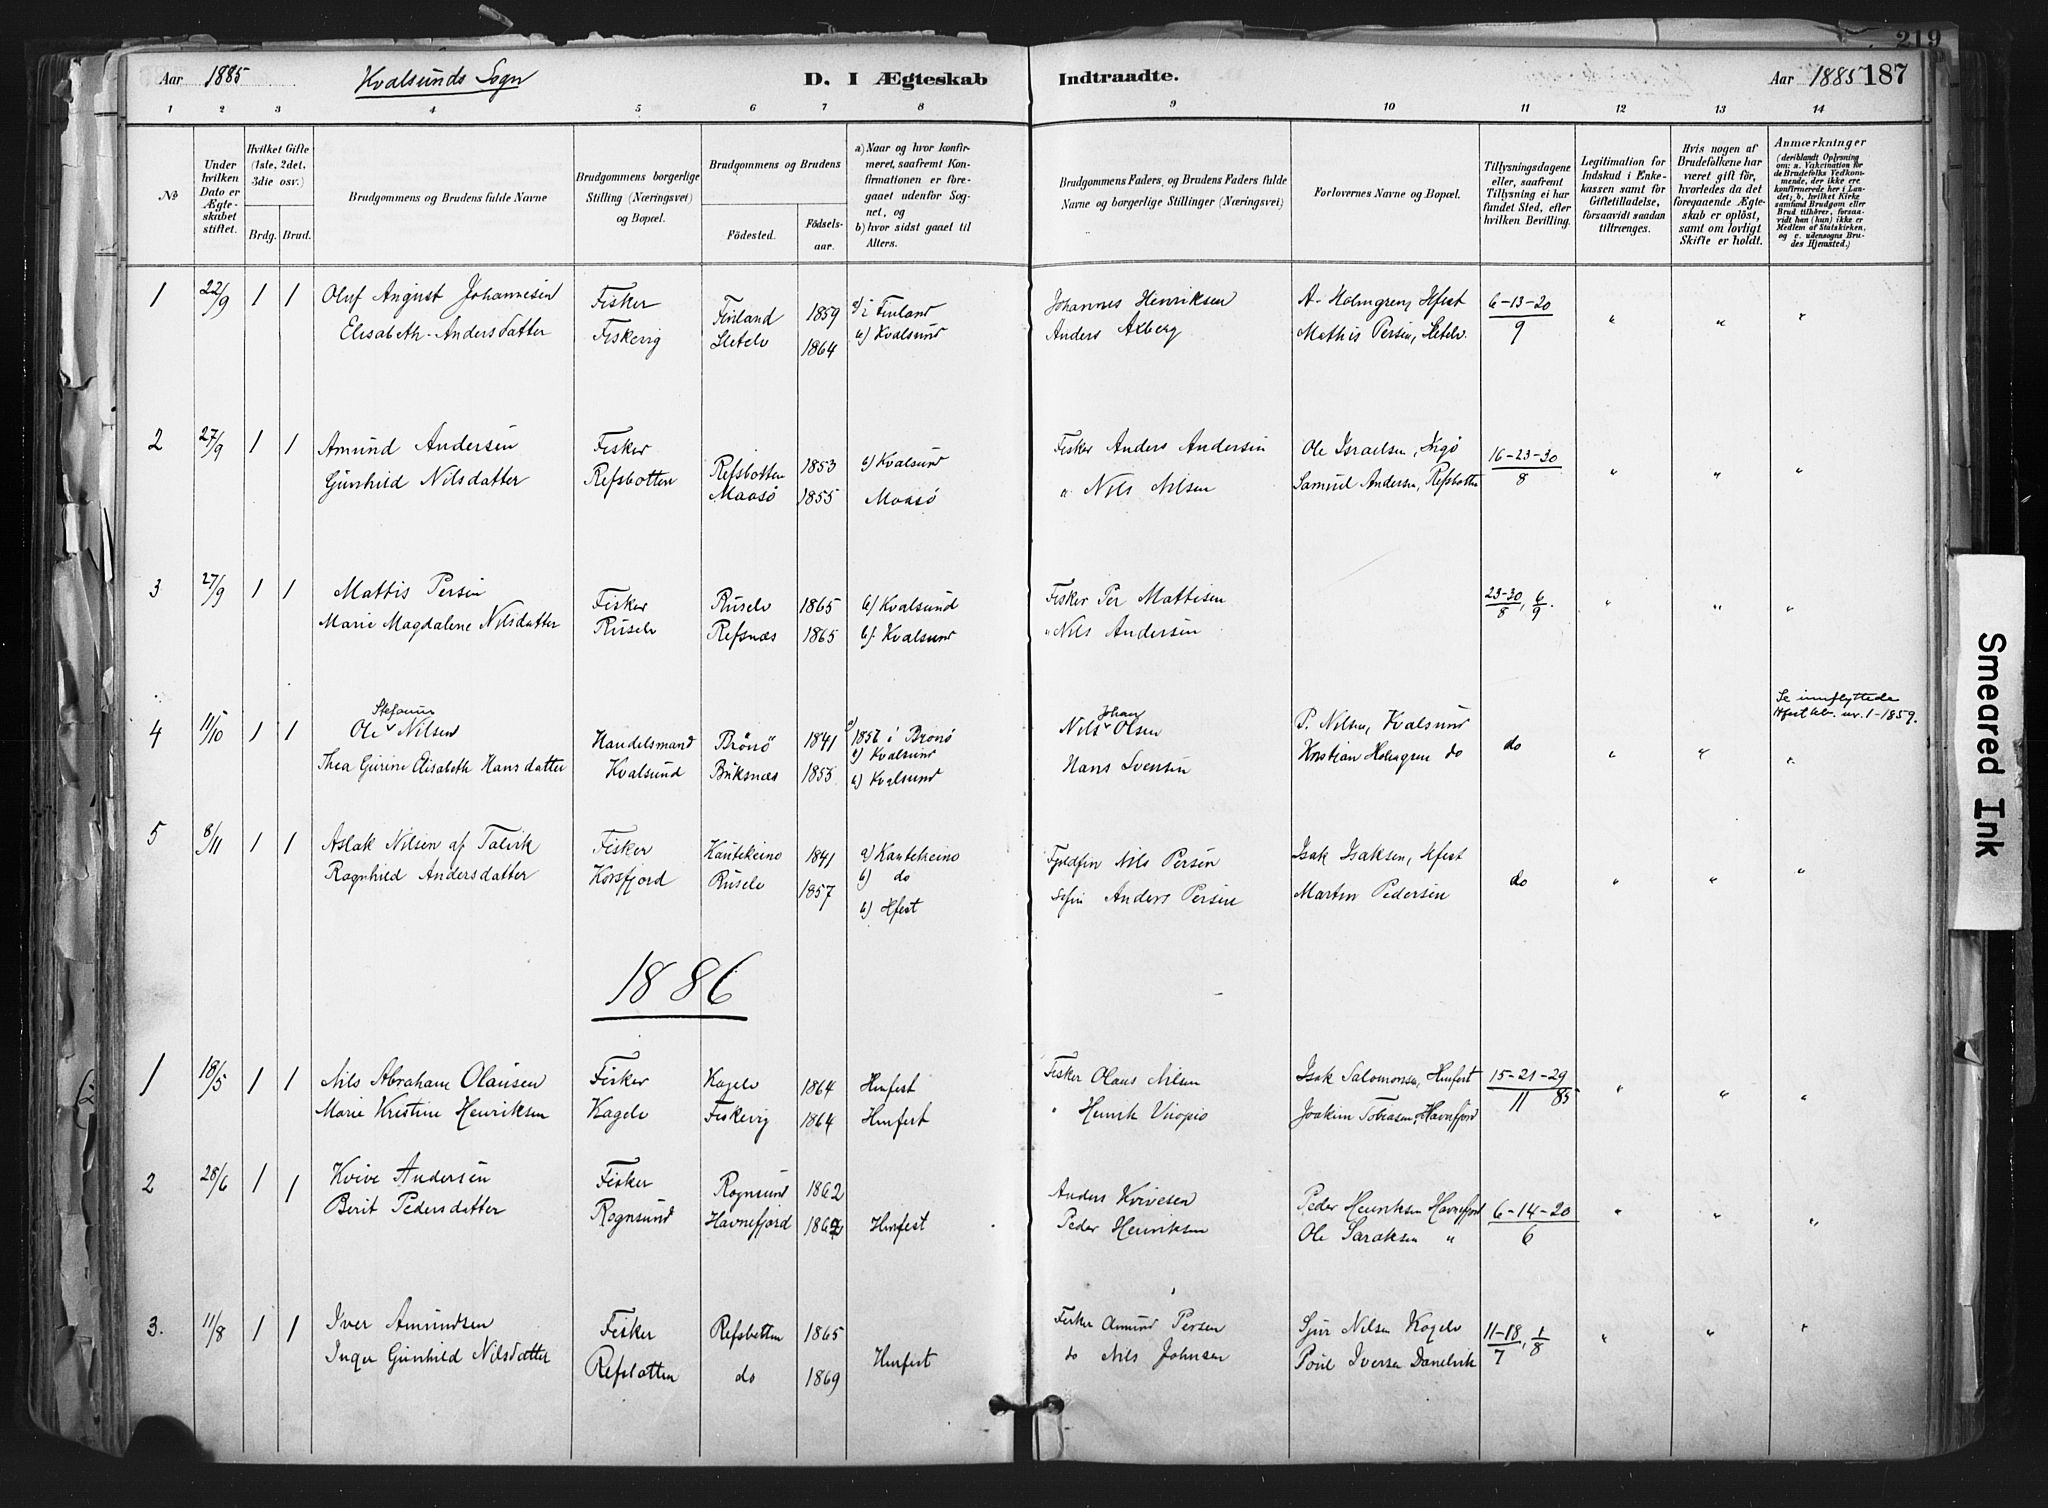 219
Aar 1885 Kvalsunds Sogn D. I Ægteskab Indtraadte. Aar 1885 187
1 2 3 4 5 6 7 8 9 10 11 12 13 14
No
Under hvilken Dato er Ægteskabet stiftet.
Hvilket Gifte (1ste, 2det, 3die osv.)
Brdg. Brud.
Brudgommens og Brudens fulde Navne
Brudgommens borgerlige Stilling (Næringsvei) og Bopæl.
Brudgommens og Brudens
Födested. Födselsaar.
a) Naar og hvor konfirmeret, saafremt Konfirmationen er foregaaet udenfor Sognet, og
b) hvor sidst gaaet til Alters.
Brudgommens Faders, og Brudens Faders fulde Navne og borgerlige Stillinger (Næringsvei)
Forlovernes Navne og Bopæl.
Tillysningsdagene eller, saafremt Tillysning ei har fundet Sted, efter hvilken Bevilling.
Legitimation for Indskud i Enkekassen samt for Giftetilladelse, forsaavidt saadan tiltrænges.
Hvis nogen af Brudefolkene har været gift för, hvorledes da det foregaaende Ægteskab er oplöst, samt om lovligt Skifte er holdt.
Anmærkninger
(deriblandt Oplysning om: a. Vakcination for de Brudefolks Vedkommende, der ikke ere konfirmerede her i Landet; b. hvilket Kirkesamfund Brudgom eller Brud tilhörer, forsaavidt han (hun) ikke er Medlem af Statskirken, og c. udensogns Brudes Hjemsted.)
1 22/9 1 1 Oluf August Johannesen Fisker Finland 1859 a) i Finland Johannes Henriksen A. Holmgren, Hfest 6-13-20/9 " " "
Elisabeth Andersdatter Fiskevig Sletelv 1864 b) Kvalsund Anders Axberg Mathis Persen, Sletelv.
2 27/9 1 1 Amund Andersen Fisker Refsbotten 1853 b) Kvalsund Fisker Anders Andersen Ole Israelsen, Ingö 16-23-30/8 " " "
Gunhild Nilsdatter Refsbotten Maasö 1855 Maasö " Nils Nilsen Samuel Andersen, Refsbotten
3 27/9 1 1 Mattis Persen Fisker Ruselv 1865 b) Kvalsund Fisker Per Mattisen 23-30/8, 6/9. " " "
Marie Magdalene Nilsdatter Ruselv Refsnæs 1865 b) Kvalsund " Nils Andersen
Se innflyttede
Hfest lb. nr. 1-1859.
Stefanus Johan
4 11/10 1 1 Ole Nilsen Handelsmand Brönö 1841 a) 1857 i Brönö Nils Olsen P. Nilsen, Kvalsund do " " "
b) Kvalsund
Thea Gurine Elisabeth Hansdatter Kvalsund Buksnæs 1855 b) Kvalsund Hans Svensen Kristian Holmgren do
5 8/11 1 1 Aslak Nilsen af Talvik Fisker Kautekeino 1841 a) Kautekeino Fjeldfin Nils Persen Isak Isaksen, Hfest do " " "
b) do
Ragnhild Andersdatter Korsfjord Ruselv 1857 b) Hfest Söfin Anders Persen Martin Pedersen
1886
1 18/5 1 1 Nils Abraham Olausen Fisker Kagelv 1864 Hmfest Fisker Olaus Nilsen Isak Salomonsen, Hmfest 15-21-29/11 85 " " "
Marie Kristine Henriksen Kagelv Fiskevig 1864 Hmfest " Henrik Viopio Joakim Tobiasen, Havnefjord
2 28/6 1 1 Kvive Andersen Fisker Rognsund 1862 Anders Kvivesen Peder Henriksen Havnefjord 6-14-20/6 " " "
Berit Pedersdatter Rognsund Havnefjord 1862 Hmfest Peder Henriksen Ole Saraksen "
3. 11/8 1 1 Iver Amundsen Fisker Refsbotten 1865 Fisker Amund Persen Sjur Nilsen Kogelv 11-18/7, 1/8 " " "
Inger Gunhild Nilsdatter Refsbotten do 1869 Hmfest do Nils Johnsen Poul Iversen Danelvik
Smeared Ink